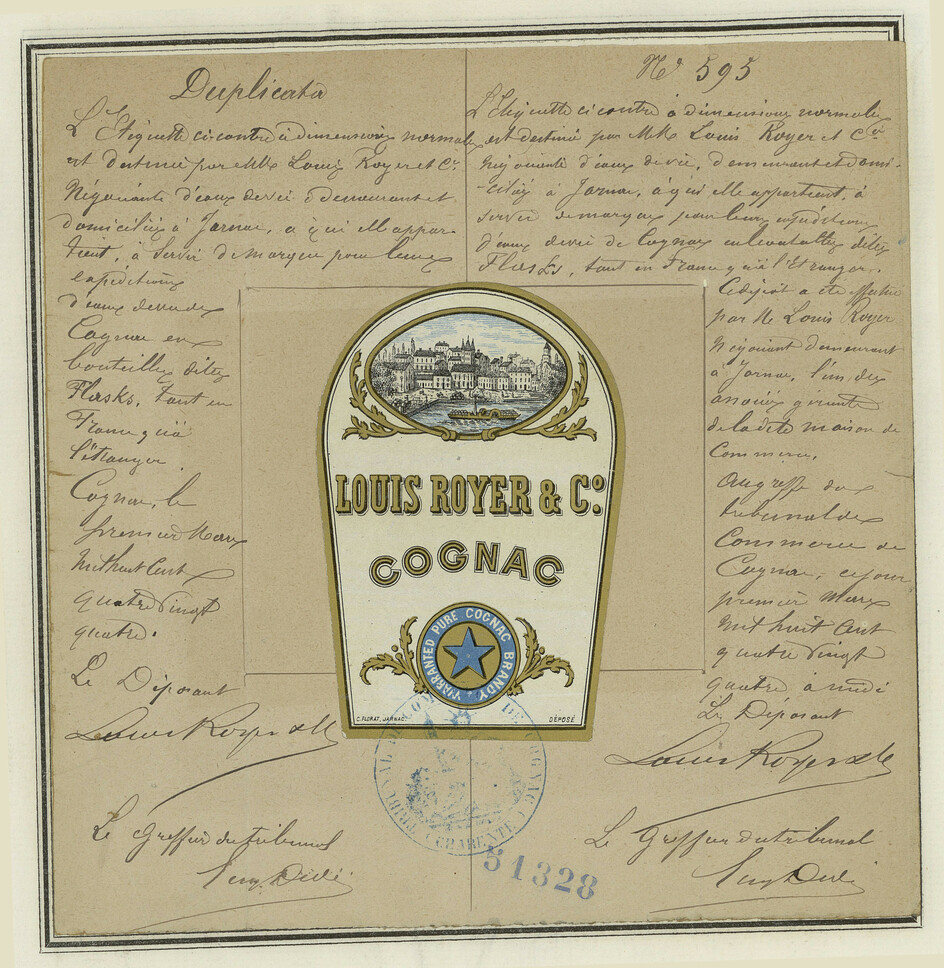 Duplicata
L'Etiquette ci-contre à dimensions normales
est destinée par MM Louis Royer et Cie
Négociants d'eaux de vie demeurant et
domiciliés à Jarnac, à qui elle appar-
tient, à servir de marque pour leurs
expéditions
d'eaux de vie de
Cognac en
bouteilles dites
Flasks, tant en
France qu'à
l'étranger.
Cognac, le
premier Mars
mil huit cent
quatre vingt
quatre.
Le Déposant
Louis Royer & Cie
Le Greffier du tribunal
No 595
L'Etiquette ci contre à dimensions normales
est destinée par MM Louis Royer et Cie
Négociants d'eaux de vie, demeurant et domi-
-ciliés à Jarnac, à qui elle appartient, à
servir de marque pour leurs expéditions
d'eaux de vie de Cognac en bouteilles dites
Flasks, tant en France qu'à l'Etranger.
Ce dépôt a été effectué
par M Louis Royer
Négociant demeurant
à Jarnac, l'un des
associés gérants
de la dite maison de
Commerce.
Au greffe du
tribunal de
Commerce de
Cognac, ce jour
premier Mars
mil huit cent
quatre vingt
quatre à midi
Le Déposant
Louis Royer & Cie
Le Greffier du tribunal
LOUIS ROYER & Co.
COGNAC
WARRANTED PURE COGNAC BRANDY
C. FLORAT, JARNAC.
DÉPOSÉ
TRIBUNAL DE COMMERCE DE COGNAC
CHARENTE
51328